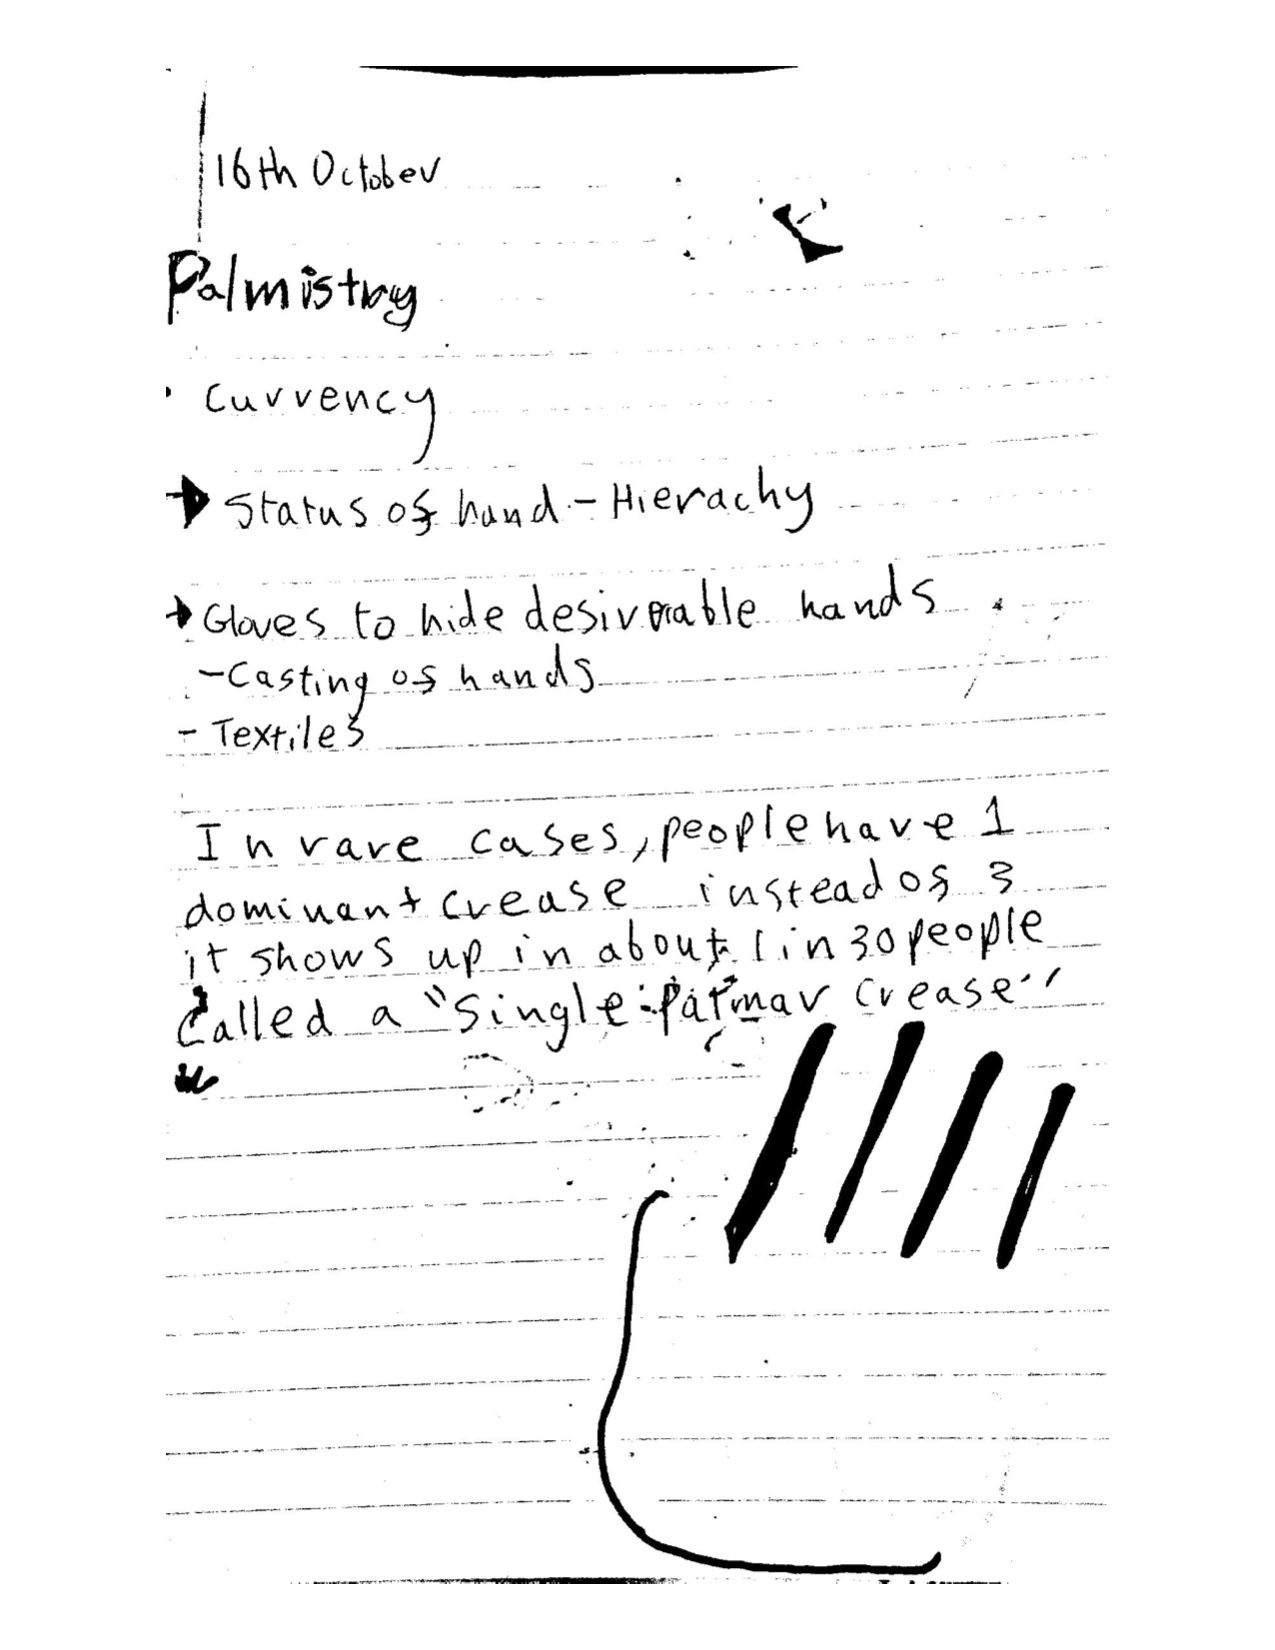 16th October
Palmistry
• Currency
→ Status of hand - Hierachy
→ Gloves to hide desirerable hands
- Casting of hands
- Textiles
In rare cases, people have 1
dominant crease instead of 3
it shows up in about 1 in 30 people
Called a "Single Palmar Crease"